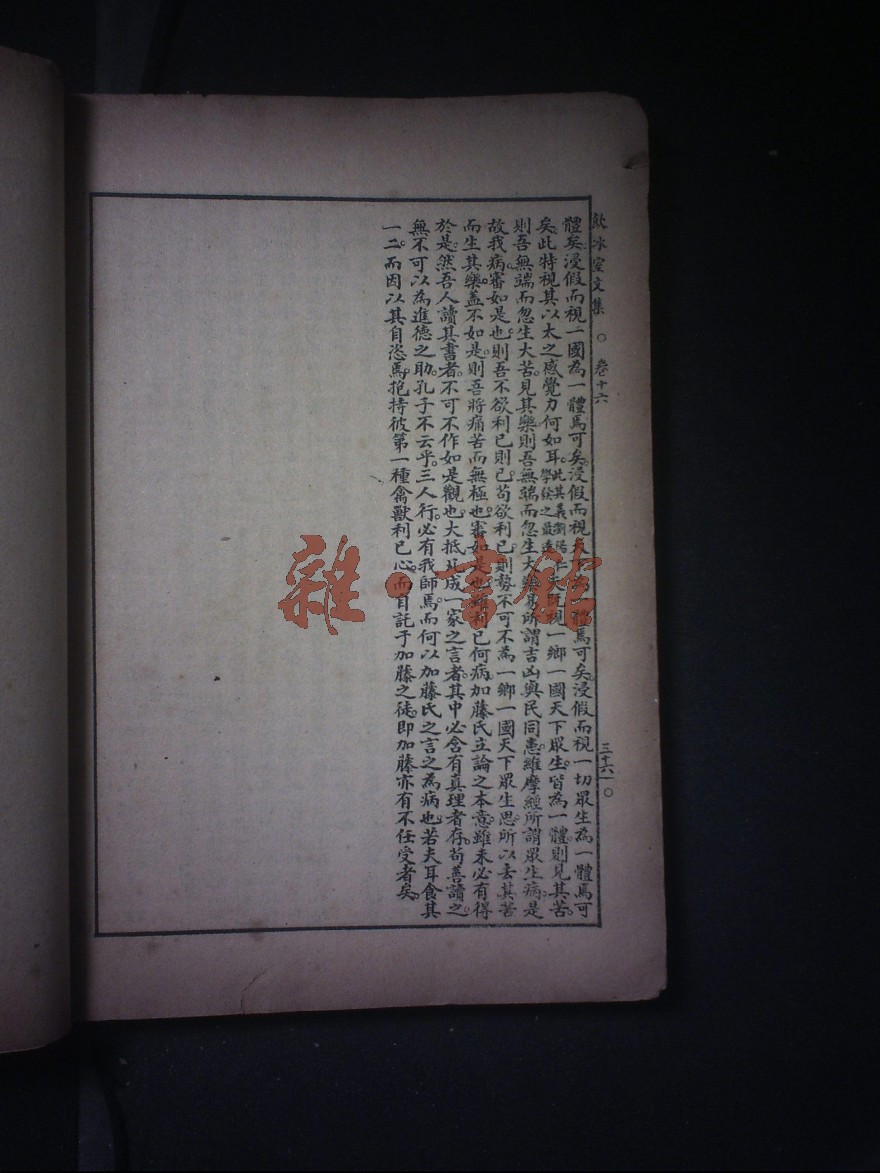 飲冰室文集 ○ 卷十六 三十六 ○
體矣。浸假而視一國為一體焉可矣。浸假而視天下為一體焉可矣。浸假而視一切眾生為一體焉可
矣。此特視其以太之感覺力何如耳。此其義瀏陽仁學發之最透夫既視一鄉一國天下眾生。皆為一體。則見其苦。
則吾無端而忽生大苦。見其樂。則吾無端而忽生大樂。易所謂吉凶與民同患。維摩經所謂眾生病。是
故我病。審如是也。則吾不欲利已則已。苟欲利已。則勢不可不為一鄉一國天下眾生思所以去其苦
而生其樂。蓋不如是。則吾將痛苦而無極也。審如是也。雖利已何病。加藤氏立論之本意。雖未必有得
於是。然吾人讀其書者。不可不作如是觀也。大抵凡成一家之言者。其中必含有真理者存。苟善讀之。
無不可以為進德之助。孔子不云乎。三人行。必有我師焉。而何以加藤氏之言之為病也。若夫耳食其
一二。而因以其自恣焉。抱持彼第一種禽獸利已心。而自託于加藤之徒。即加藤亦有不任受者矣。
雜·書館